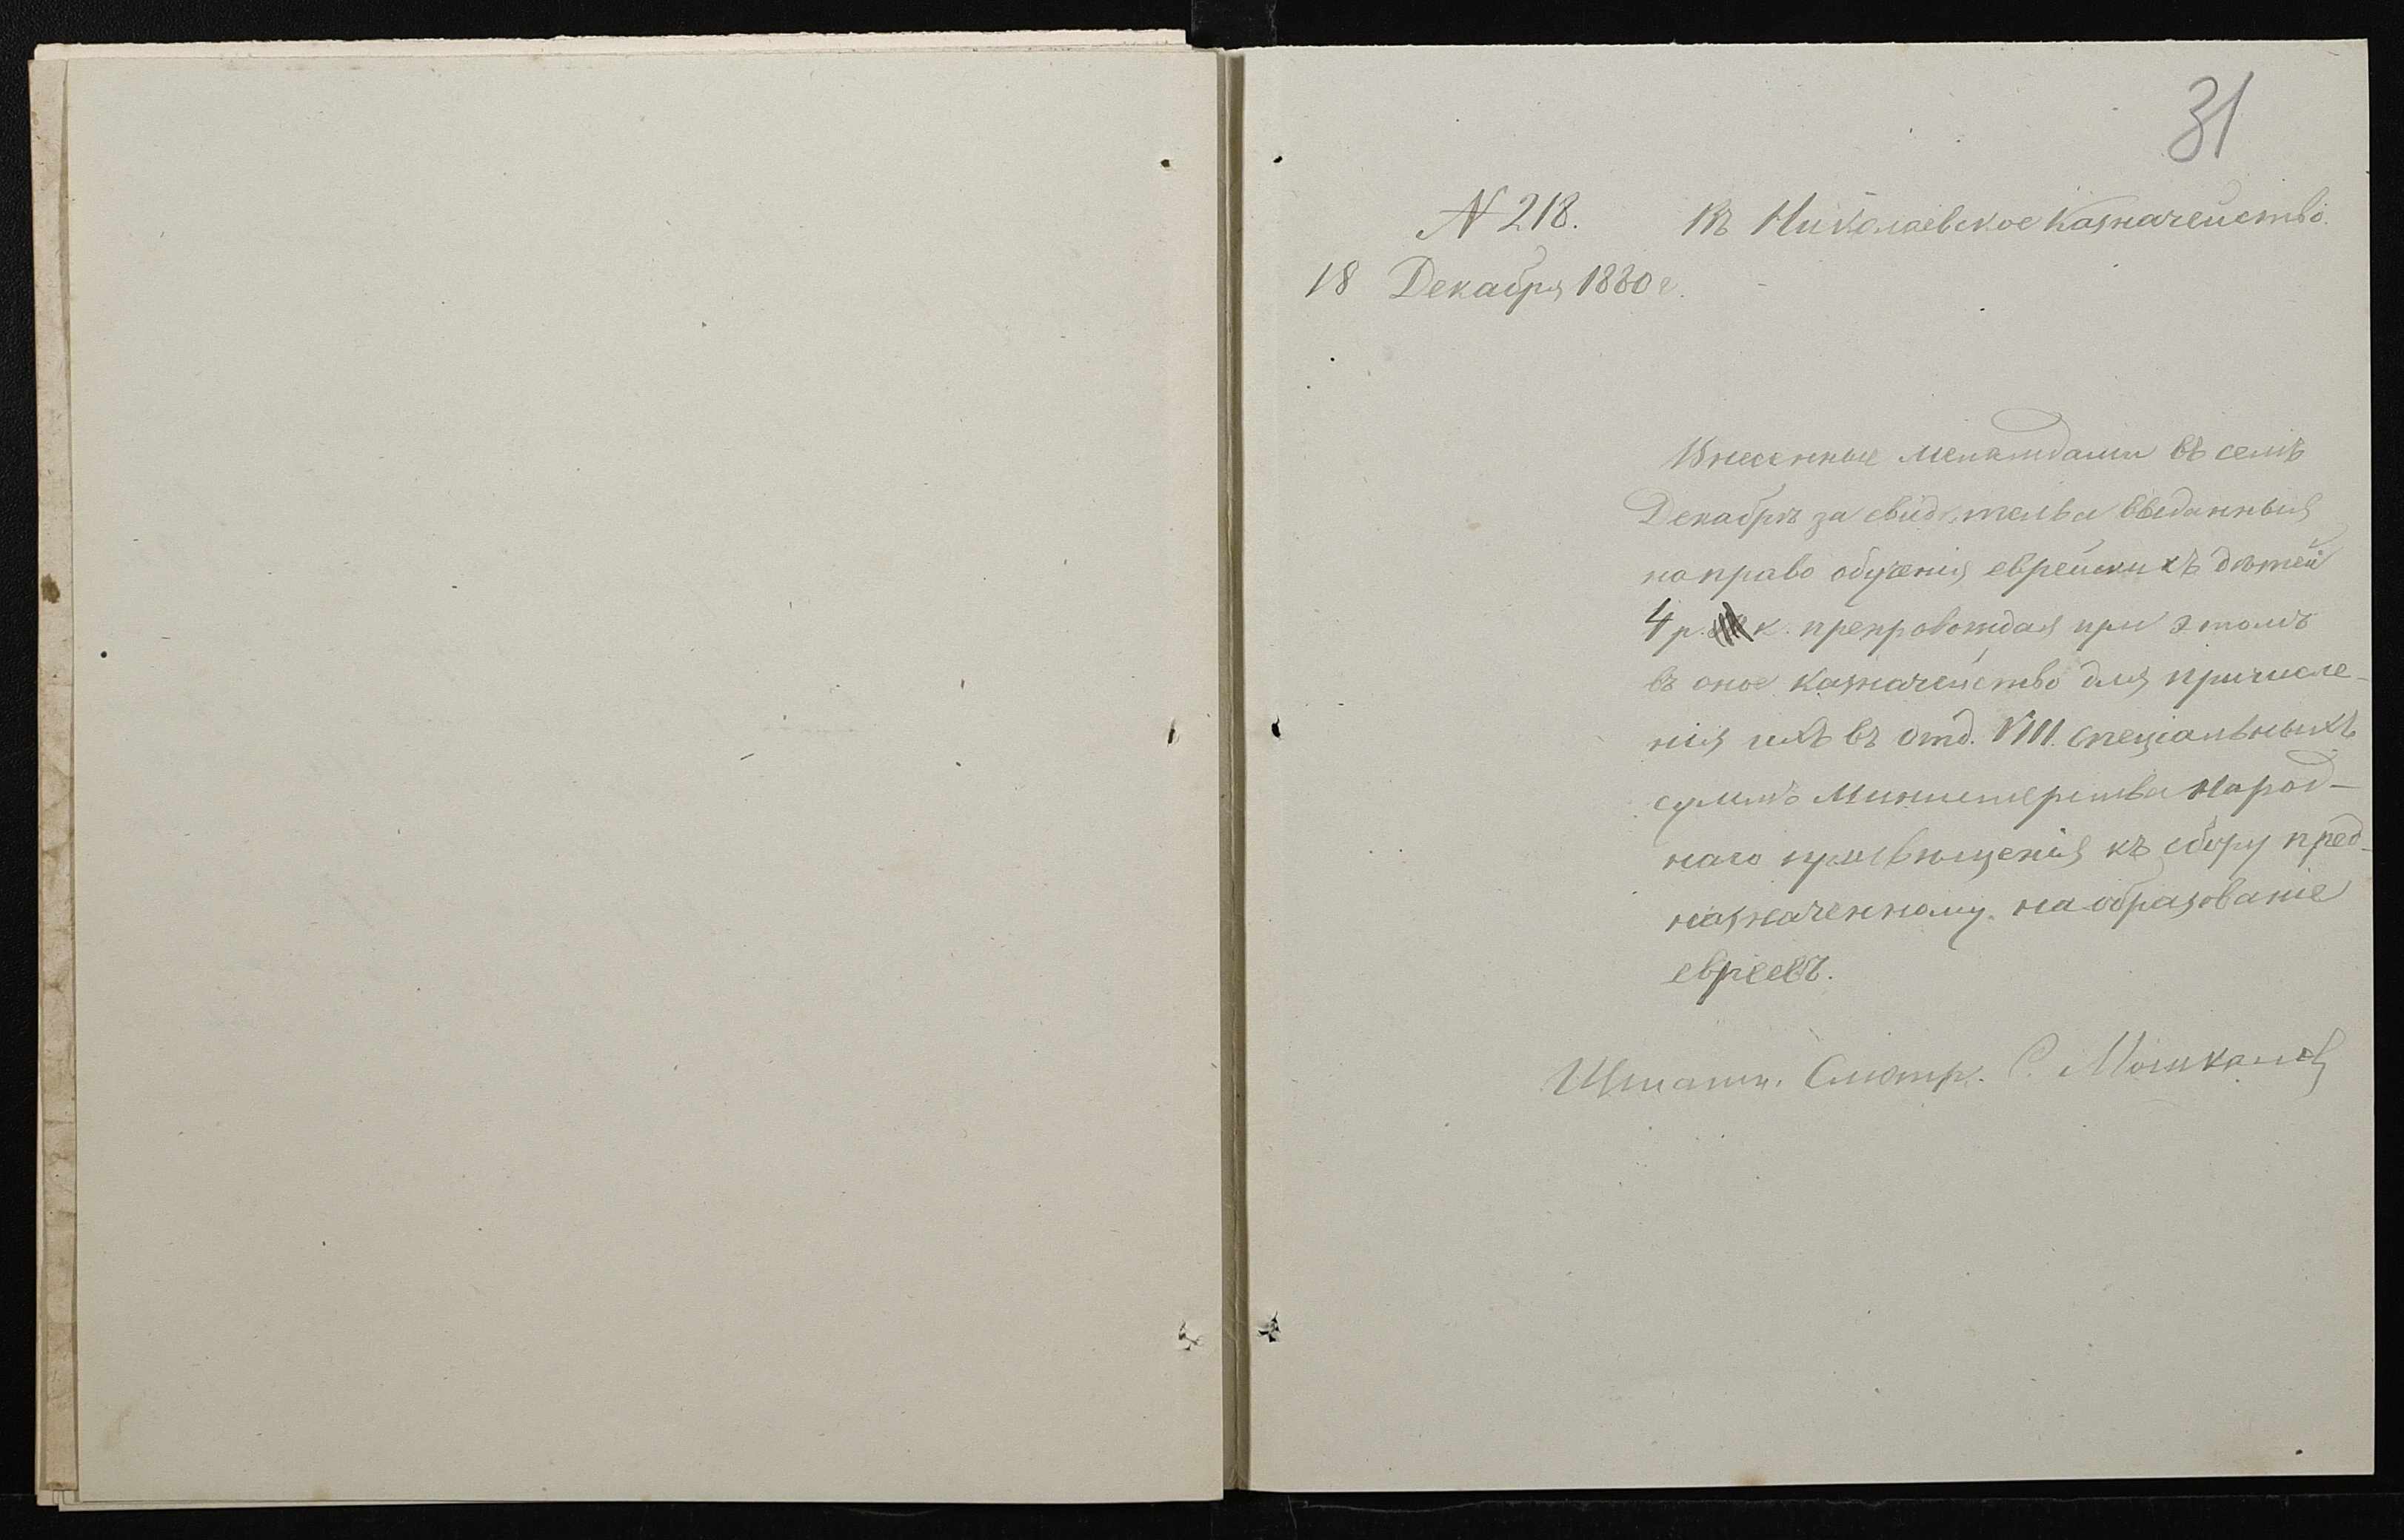 31
N 218. Въ Николаевское Казначейство.
18 Декабря 1880 г.
Внесенные меламдами въ семъ
Декабрѣ за свидѣтельва выданныя
на право обученія еврейскихъ дѣтей
4 р. к. препровождая при этомъ
въ оное казначейство для причисле-
нія ихъ въ отд. VIII. спеціальныхъ
суммъ Министерства Народ-
наго просвѣщенія къ сбору пред-
назначенному на образованіе
евреевъ.
Штатн. Смотр. С.